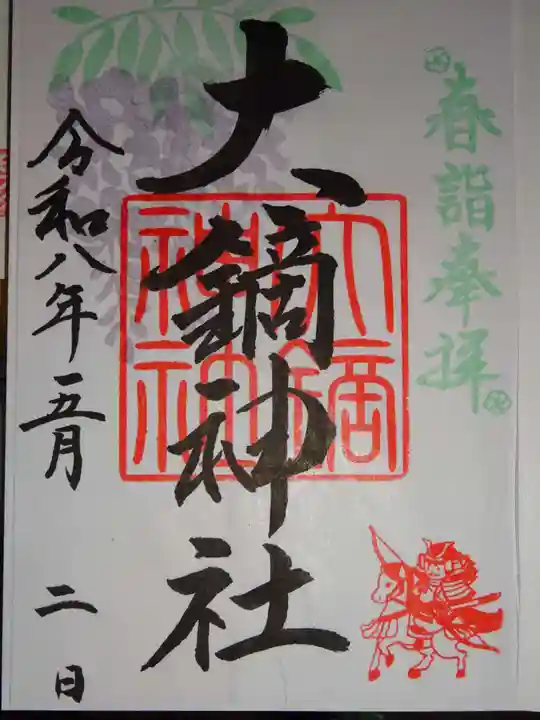 春詣奉拝
大鏑神社
大鏑神社
令和八年五月二日